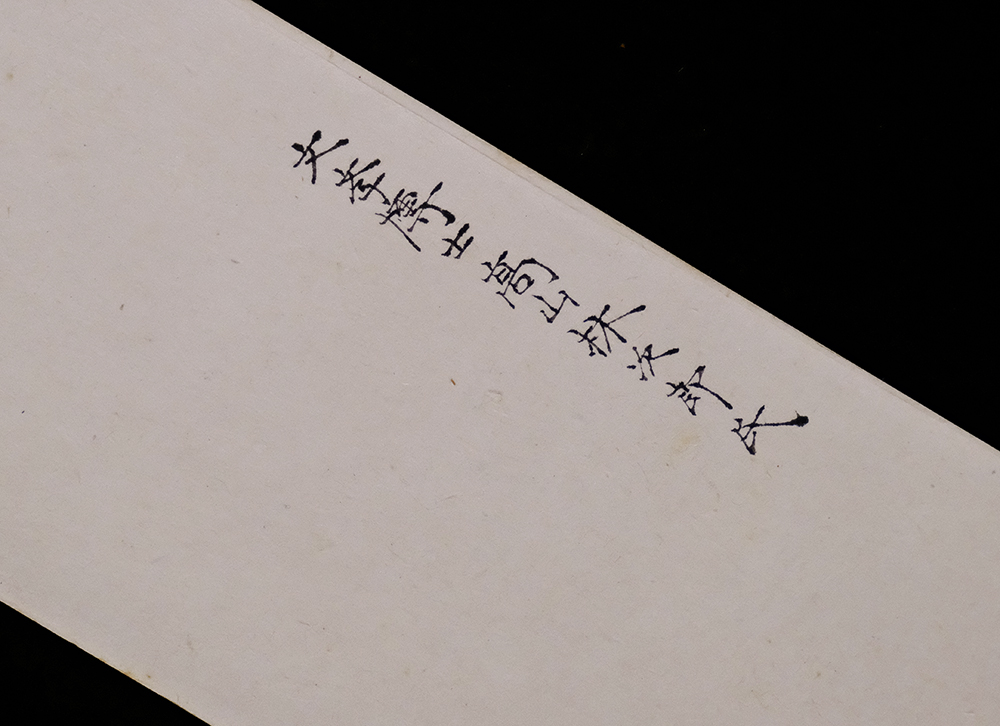 文学博士高山林次郎氏